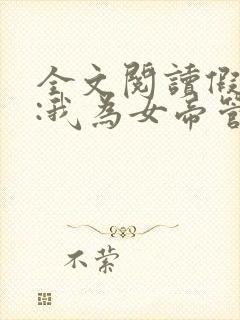 全文閱讀假
:我為女帝管
不萦